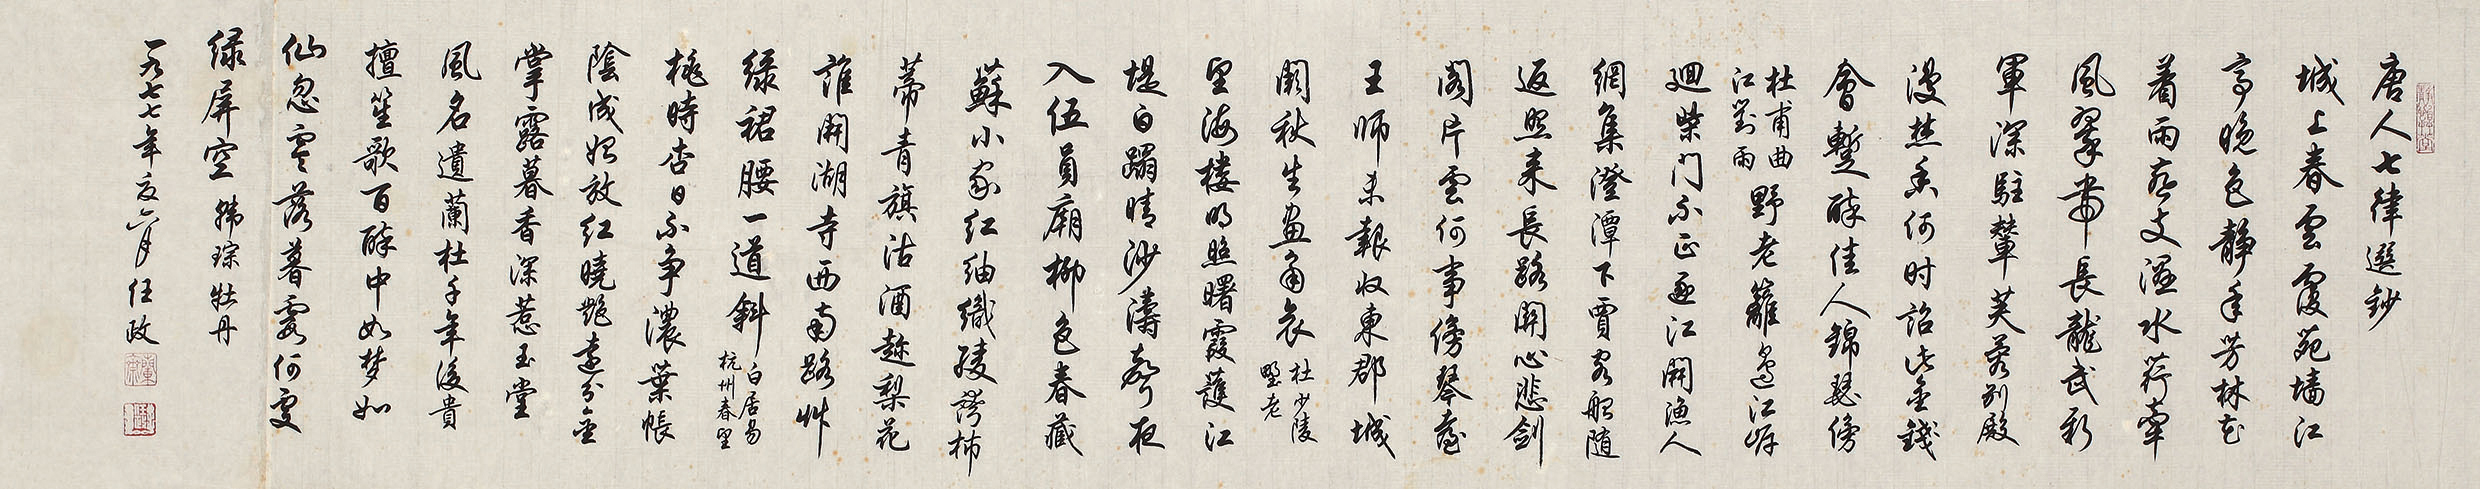 唐人七律選鈔
城上春雲覆苑墻江
亭晚色靜年芳林花
着雨燕支濕水荇牽
風翠帶長龍武新
軍深駐輦芙蓉別殿
漫焚香何时詔此金錢
會暫醉佳人錦瑟傍
杜甫曲
江對雨
野老籬邊江岸
迴柴门不正逐江開漁人
網集澄潭下賈客船随
返照来長路關心悲劍
閣片雲何事傍琴臺
王師未報收東郡城
闕秋生畫角哀
杜少陵
野老
望海楼明照曙霞護江
堤白蹋晴沙濤聲夜
入伍員廟柳色春藏
蘇小家红紬織綾誇柿
蒂青旗沽酒趂梨花
誰開湖寺西南路艸
绿裙腰一道斜
白居易
杭州春望
桃時杏日不争濃葉帳
陰成始放红曉艷遠分金
掌露暮香深惹玉堂
風名遺蘭杜千年後貴
擅笙歌百醉中如梦如
仙忽零落暮霞何處
绿屏空
韩琮牡丹
一九七七年夏六月任政